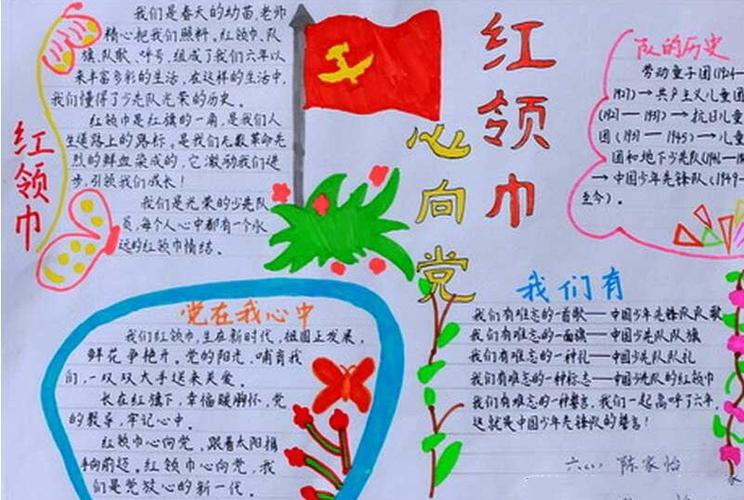 红领巾
我们是春天的幼苗,老师
精心把我们照料,红领巾、队
旗、队歌、呼号,组成了我们六年以
来丰富多彩的生活,在这样的生活中,
我们懂得了少先队光荣的历史。
红领巾是红旗的一角,是我们人
生道路上的路标。是我们无数革命先
烈的鲜血染成的,它激动我们进
步,引领我们成长!
我们是光荣的少先队
员,每个人心中都有一个永
远的红领巾情结。
红领巾
心向党
队的历史
劳动童子团(1924—
1927)→共产主义儿童团
(1927—1937)→抗日儿童
团(1937—1945)→儿童
团和地下少先队(1946—19
→中国少年先锋队(1949—
至今)。
党在我心中
我们红领巾,生在新时代,祖国正发展,
鲜花争艳开。党的阳光,哺育我
们,一双双大手送来关爱。
长在红旗下,幸福暖胸怀,党
的教导,牢记心中。
红领巾心向党,跟着太阳指
向前迈。红领巾心向党,我
们是党放心的新一代。
我们有
我们有难忘的一首歌——中国少年先锋队队歌
我们有难忘的一面旗——中国少先队队旗
我们有难忘的一种礼——中国少先队队礼
我们有难忘的一种标志——中国少先队的红领巾
我们有难忘的一种誓言,我们一起高呼了六年,
这就是中国少年先锋队的誓言!
陈家怡